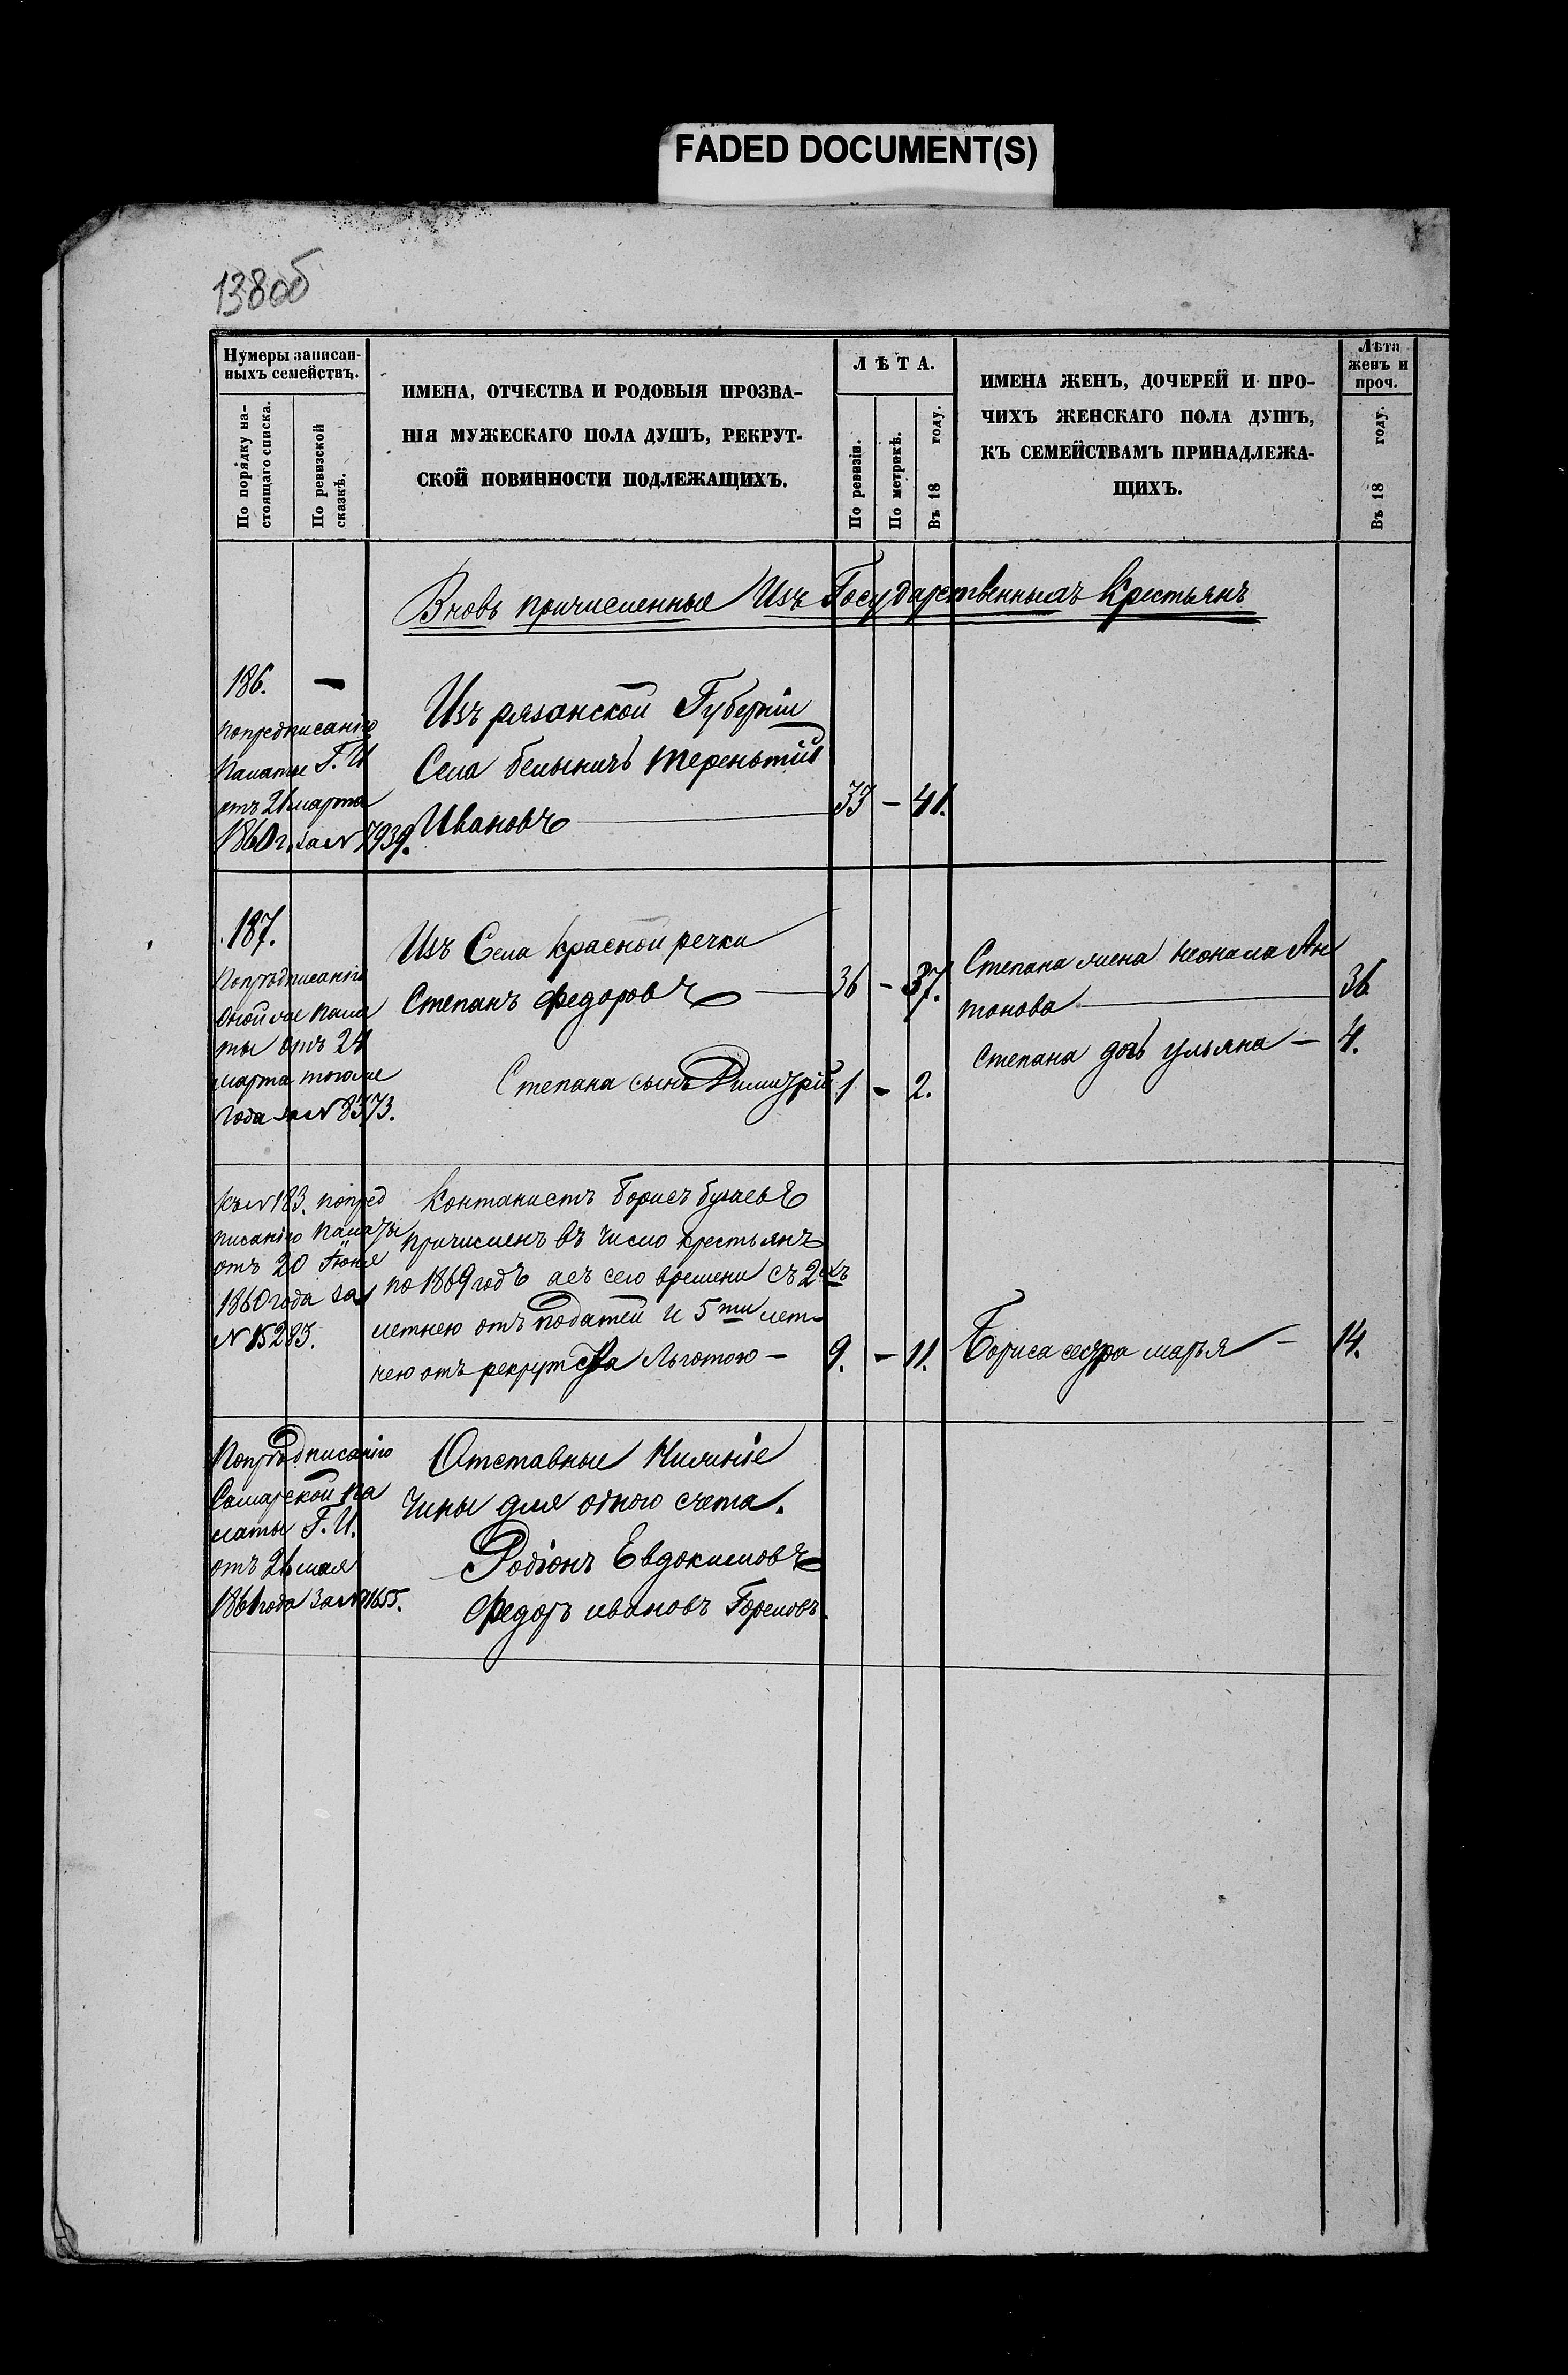 FADED DOCUMENT(S)
138об
Нумеры записан-
ныхъ семействъ.
По порядку на-
стоящаго списка.
По ревизской
сказкѣ.
ИМЕНА, ОТЧЕСТВА И РОДОВЫЯ ПРОЗВА-
НІЯ МУЖЕСКАГО ПОЛА ДУШЪ, РЕКРУТ-
СКОЙ ПОВИННОСТИ ПОДЛЕЖАЩИХЪ.
ЛѢТА.
По ревизіи.
По метрикѣ.
Въ 18 году.
ИМЕНА ЖЕНЪ, ДОЧЕРЕЙ И ПРО-
ЧИХЪ ЖЕНСКАГО ПОЛА ДУШЪ,
КЪ СЕМЕЙСТВАМЪ ПРИНАДЛЕЖА-
ЩИХЪ.
Лѣта
женъ и
проч.
Въ 18 году.
Вновь причисленные Изъ Государственныхъ Крестьянъ
186. —
попредписанію
Палаты Г. И
отъ 21 марта
1860 г. за № 7939.
Изъ рязанской Губерніи
Села белыничь терентій
Ивановъ 39 – 41.
187.
Попрѣдписанію
оной же пала
ты отъ 24
марта тогоже
года за № 8373.
Изъ Села красной речки
Степанъ федоровъ — 36 – 37.
Степана сынъ Димитрій 1 – 2.
Степана жена Ан
тонова — 36
Степана дочь ульяна — 4.
Къ № 183. попред
писанію палаты
отъ 20 Іюня
1860 года за
№ 15283.
Контанистъ борисъ
причисленъ въ число крестьянъ
по 1869 годъ асъ сего времени съ 2ухъ
летнею отъ податей и 5ти лет-
нею отъ рекрутства Льготою — 9. – 11.
Бориса сестра марья — 14.
Попрѣдписанію
Самарской па
латы Г. И.
отъ 26 мая
1861 года за № 11655.
Отставные Нижніе
Чины для одного счета.
Родіонъ Евдокимовъ
федоръ ивановъ Гореловъ